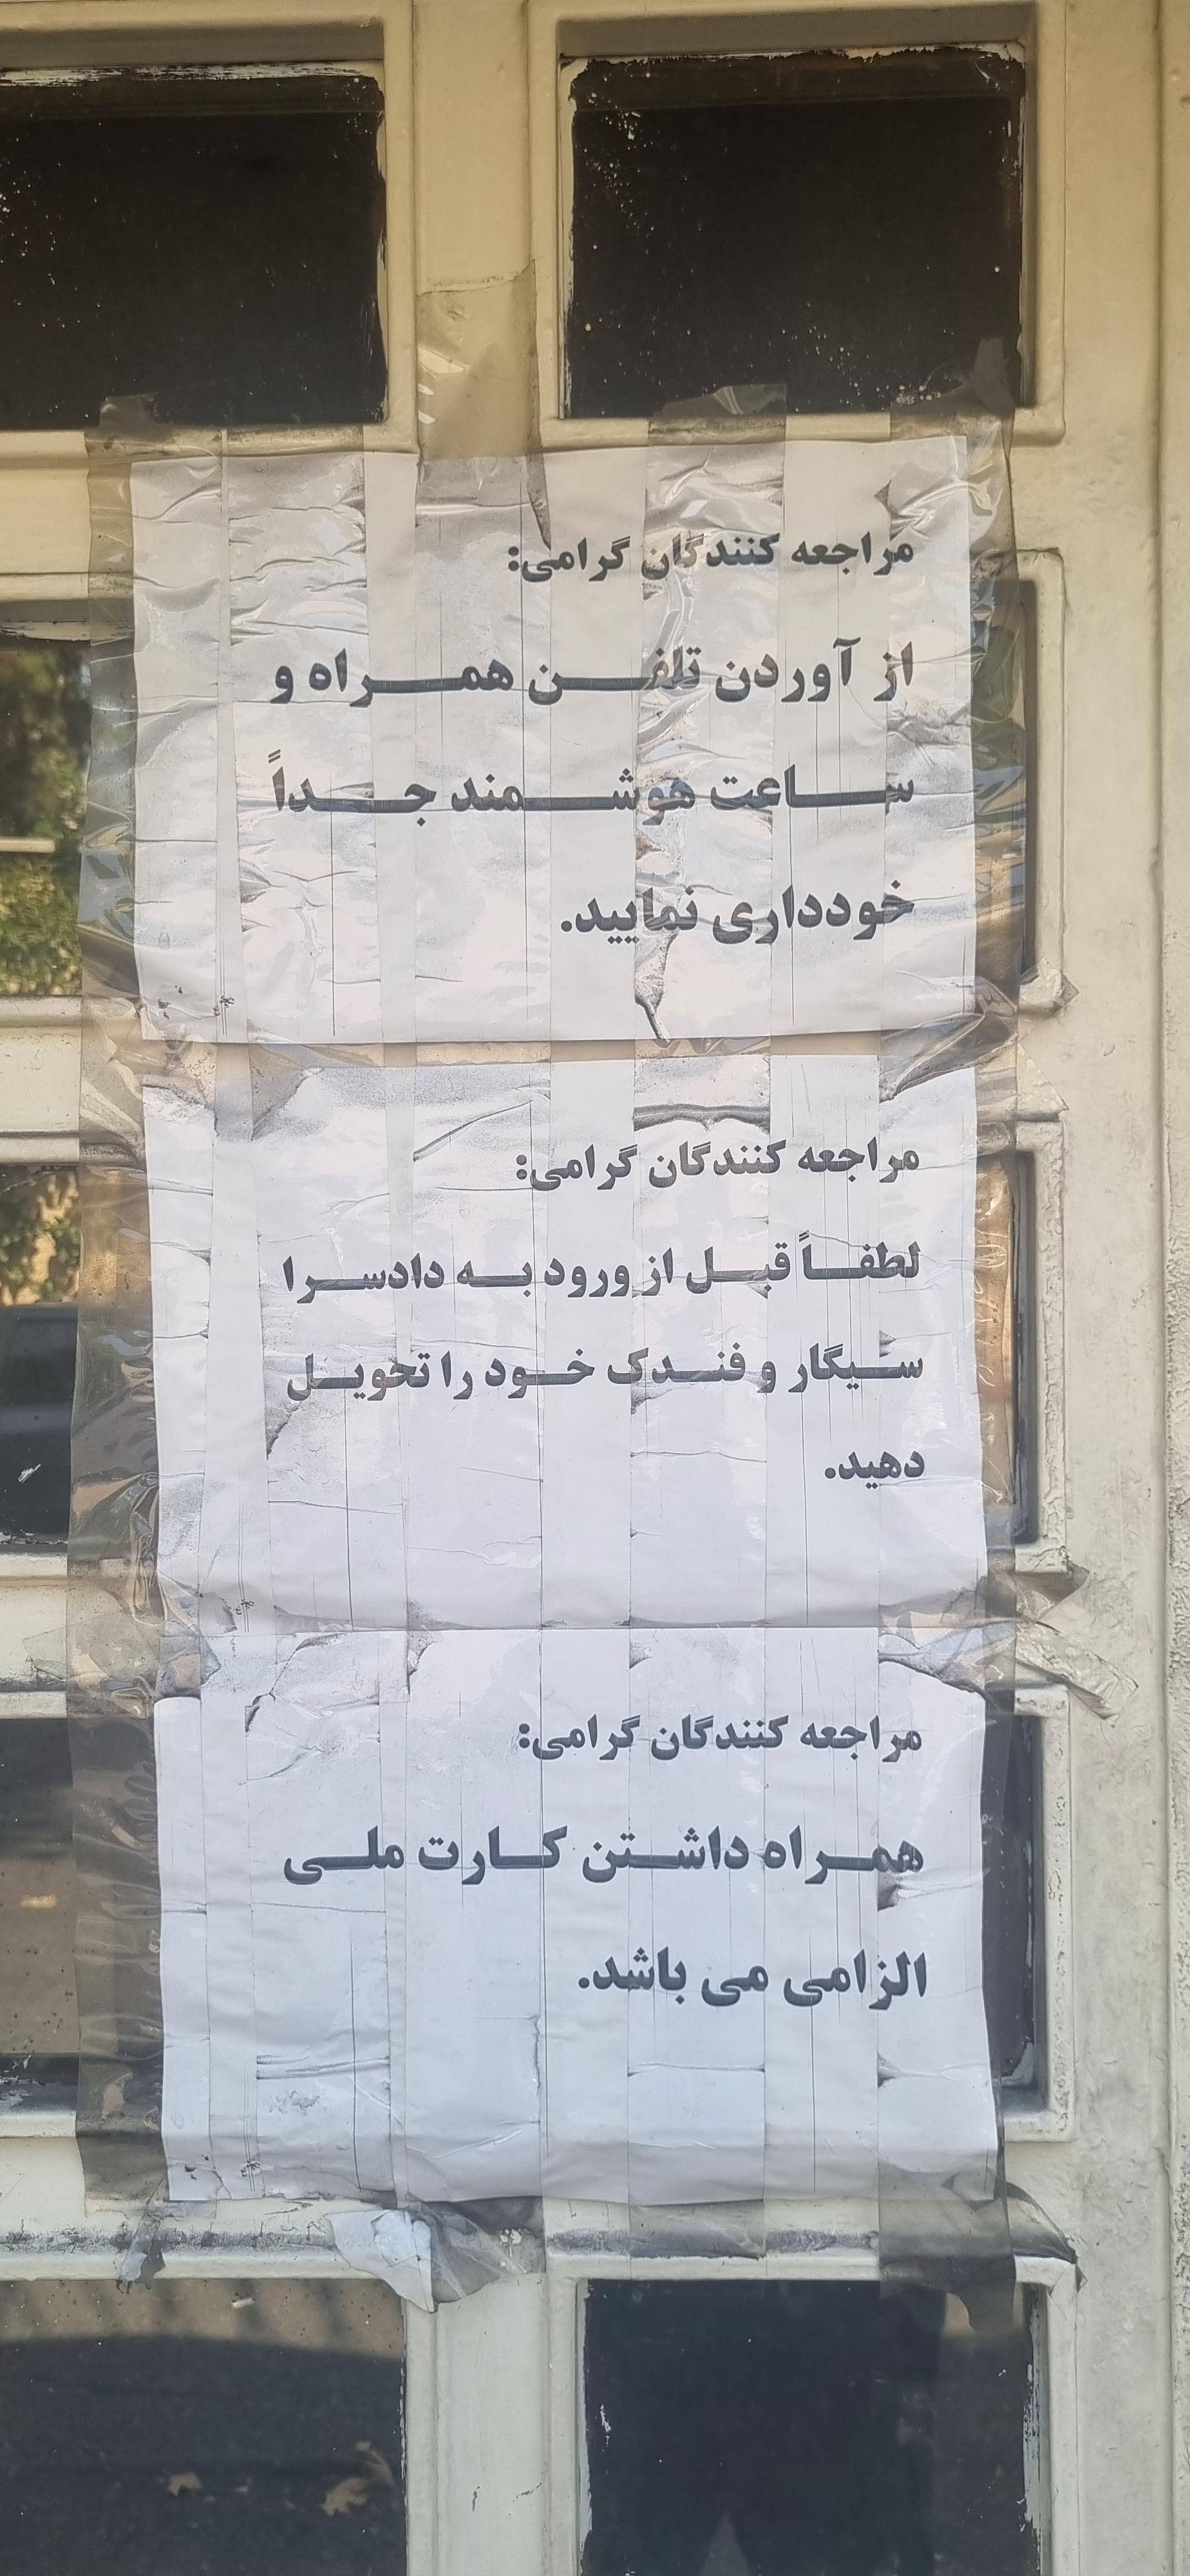 مراجعه کنندگان گرامی:
از آوردن تلفن همراه و
ساعت هوشمند جداً
خودداری نمایید.
مراجعه کنندگان گرامی:
لطفاً قبل از ورود به دادسرا
سیگار و فندک خود را تحویل
دهید.
مراجعه کنندگان گرامی:
همراه داشتن کارت ملی
الزامی می باشد.